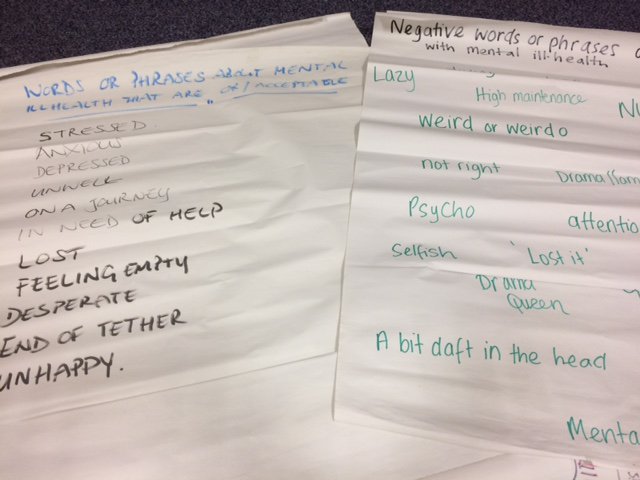 WORDS OR PHRASES ABOUT MENTAL
ILLHEALTH THAT ARE "OK/ACCEPTABLE
STRESSED
ANXIOUS
DEPRESSED
UNWELL
ON A JOURNEY
IN NEED OF HELP
LOST
FEELING EMPTY
DESPERATE
END OF TETHER
UNHAPPY.
Negative words or phrases
with mental ill-health
Lazy
High maintenance
weird or weirdo
not right
Psycho
attentio
Selfish
'Lost it'
Drama
Queen
A bit daft in the head
Menta